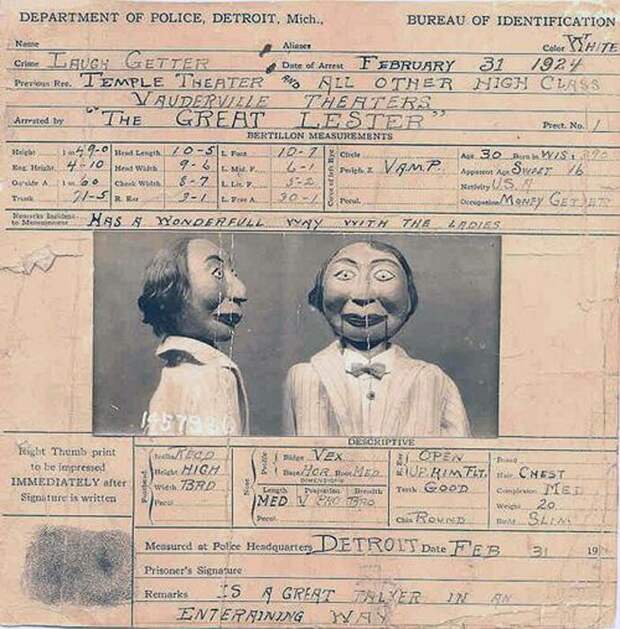 DEPARTMENT OF POLICE, DETROIT, Mich., BUREAU OF IDENTIFICATION
Name Aliases Color WHITE
Crime LAUGH GETTER Date of Arrest FEBRUARY 31 1924
Previous Rec. TEMPLE THEATER AND ALL OTHER HIGH CLASS
VAUDERVILLE THEATERS
Arrested by "THE GREAT LESTER" Prect. No. 1
BERTILLON MEASUREMENTS
Height 1 m 49-0 Head Length 10-5 L. Foot 10-7 Circle Age 30 Born in WIS
Eng. Height 4-10 Head Width 9-6 L. Mid. F. 6-1 Periph. Z VAMP. Apparent Age SWEET 16
Outside A 1 m 60 Cheek Width 8-7 L. Lit. F. 5-2 Nativity U.S.A
Trunk 71-5 R. Ear 3-1 L. Fore A. 30-1 Pecul. Occupation MONEY GETTER
Color of left Eye
Remarks Incident to Measurement HAS A WONDERFULL WAY WITH THE LADIES
DESCRIPTIVE
Right Thumb print
to be impressed
IMMEDIATELY after
Signature is written
Forehead
Inclin. RECD
Height HIGH
Width BRD
Pecul.
Nose
Profile
Ridge VEX
Base HOR. Root MED
DIMENSIONS
Length Projection Breadth
MED
Pecul.
R. Ear
OPEN
UP. RIM FLT.
Teeth GOOD
Chin ROUND
Beard
Hair CHEST
Complexion MED
Weight 20
Build SLIM
Measured at Police Headquarters DETROIT Date FEB 31 19
Prisoner's Signature
Remarks IS A GREAT TALKER IN AN
ENTERAINING WAY